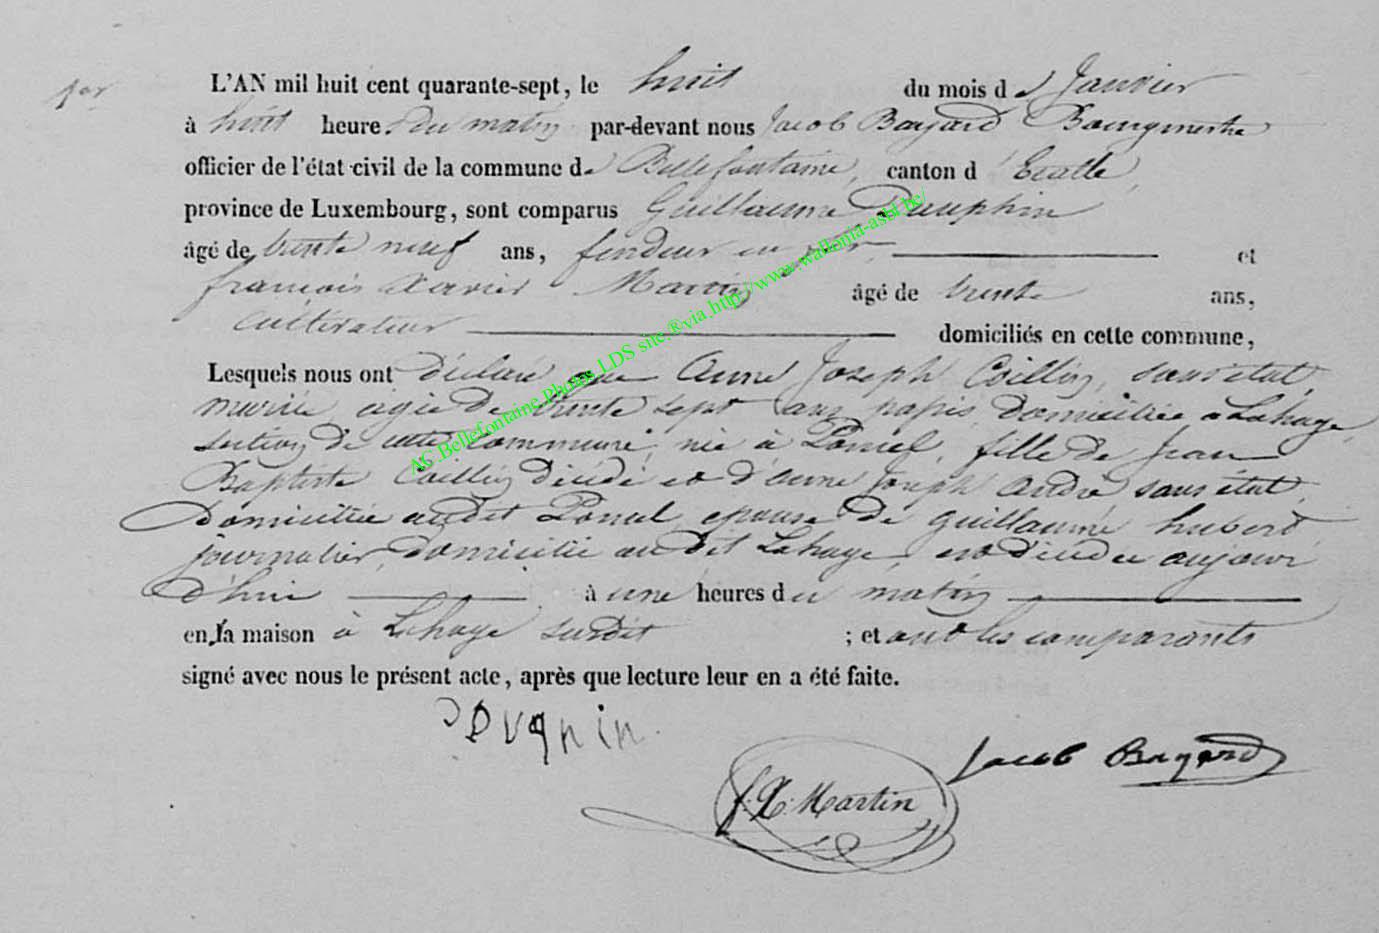 1er
L'AN mil huit cent quarante-sept, le huit du mois de Janvier
à huit heures du matin par-devant nous Jacob Bayard Bourgmestre
officier de l'état-civil de la commune de Bellefontaine, canton d'Etalle,
province de Luxembourg, sont comparus Guillaume Dauphin
âgé de trente neuf ans, fendeur en et
françois Xavier Martin âgé de trente ans,
cultivateur domiciliés en cette commune,
Lesquels nous ont déclaré que Anne Joseph Collin, sans état,
mariée, agée de trente sept ans domiciliée a Lahage,
section de cette commune, née à fille de jean
Baptiste Collin décédé et d'anne joseph andré sans état,
domiciliée audit epouse de guillaume hubert,
journalier, domicilié audit Lahage, est décédée aujour
d'hui à une heures du matin
en la maison à Lahage susdit ; et ont les comparants
signé avec nous le présent acte, après que lecture leur en a été faite.
Jacob Bayard
f. X. Martin
AC Bellefontaine Photos LDS site ®via http://www.wallonia-asbl.be/